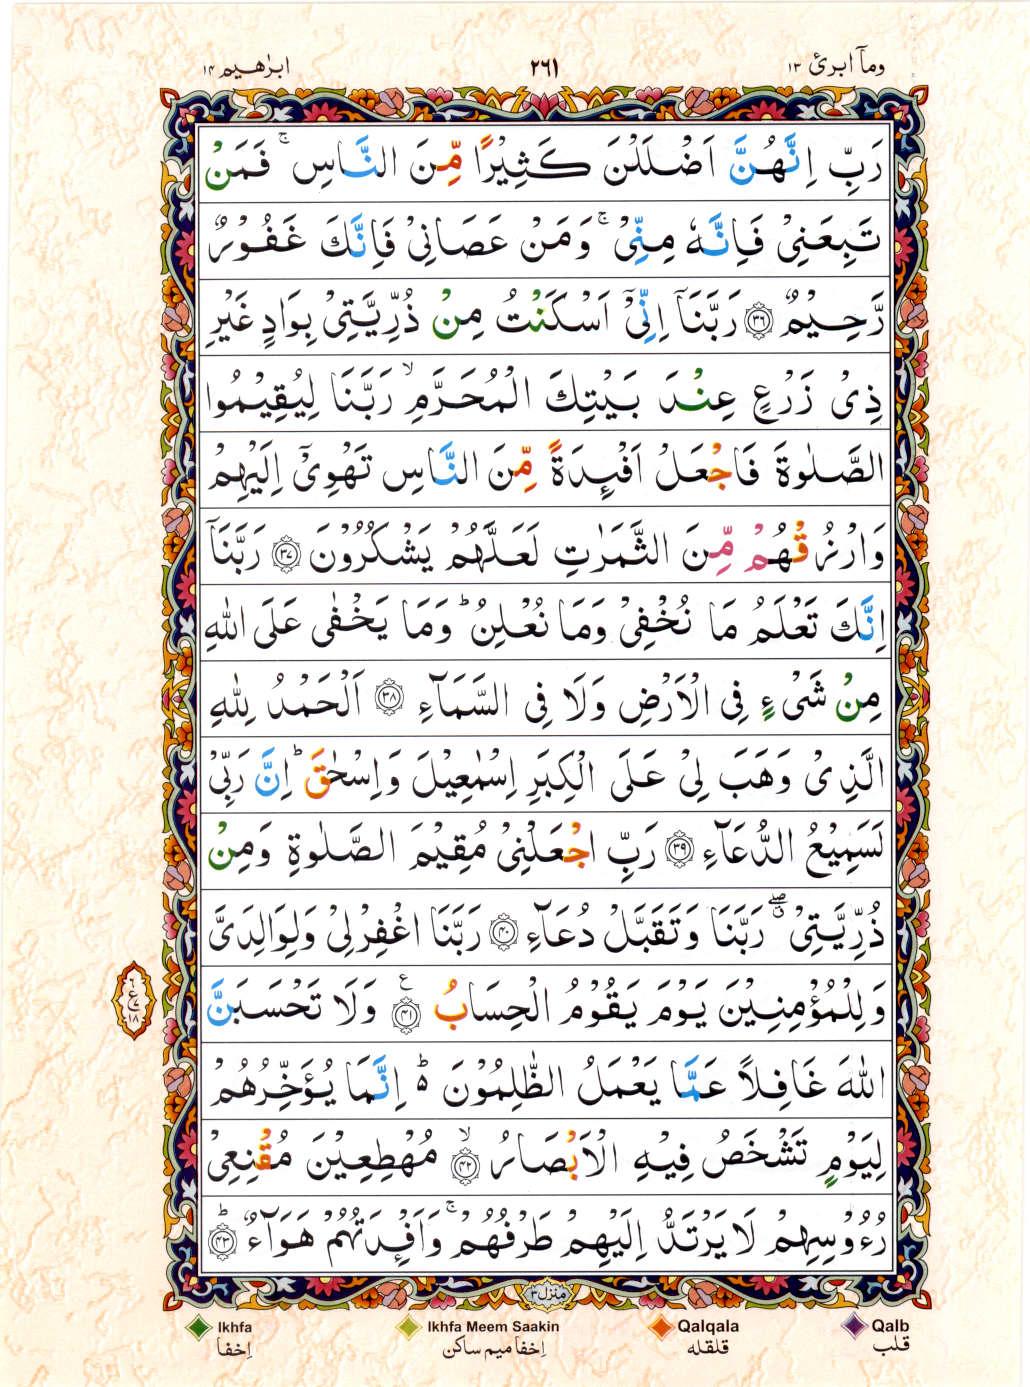 وماۤ ابرئ ۱۳
۲٦۱
ابرٰهیم ۱۴
رَبِّ اِنَّهُنَّ اَضْلَلْنَ كَثِیْرًا مِّنَ النَّاسِ ۚ فَمَنْ
تَبِعَنِیْ فَاِنَّهٗ مِنِّیْ ۚ وَمَنْ عَصَانِیْ فَاِنَّكَ غَفُوْرٌ
رَّحِیْمٌ ﴿۳۶﴾ رَبَّنَاۤ اِنِّیْۤ اَسْكَنْتُ مِنْ ذُرِّیَّتِیْ بِوَادٍ غَیْرِ
ذِیْ زَرْعٍ عِنْدَ بَیْتِكَ الْمُحَرَّمِ ۙ رَبَّنَا لِیُقِیْمُوا
الصَّلٰوةَ فَاجْعَلْ اَفْئِدَةً مِّنَ النَّاسِ تَهْوِیْۤ اِلَیْهِمْ
وَارْزُقْهُمْ مِّنَ الثَّمَرٰتِ لَعَلَّهُمْ یَشْكُرُوْنَ ﴿۳۷﴾ رَبَّنَاۤ
اِنَّكَ تَعْلَمُ مَا نُخْفِیْ وَمَا نُعْلِنُ ؕ وَمَا یَخْفٰی عَلَی اللّٰهِ
مِنْ شَیْءٍ فِی الْاَرْضِ وَلَا فِی السَّمَآءِ ﴿۳۸﴾ اَلْحَمْدُ لِلّٰهِ
الَّذِیْ وَهَبَ لِیْ عَلَی الْكِبَرِ اِسْمٰعِیْلَ وَاِسْحٰقَ ؕ اِنَّ رَبِّیْ
لَسَمِیْعُ الدُّعَآءِ ﴿۳۹﴾ رَبِّ اجْعَلْنِیْ مُقِیْمَ الصَّلٰوةِ وَمِنْ
ذُرِّیَّتِیْ ۖۗ رَبَّنَا وَتَقَبَّلْ دُعَآءِ ﴿۴۰﴾ رَبَّنَا اغْفِرْلِیْ وَلِوَالِدَیَّ
وَلِلْمُؤْمِنِیْنَ یَوْمَ یَقُوْمُ الْحِسَابُ ﴿۴۱﴾ ع وَلَا تَحْسَبَنَّ
اللّٰهَ غَافِلًا عَمَّا یَعْمَلُ الظّٰلِمُوْنَ ؕ۬ اِنَّمَا یُؤَخِّرُهُمْ
لِیَوْمٍ تَشْخَصُ فِیْهِ الْاَبْصَارُ ﴿۴۲﴾ ۙ مُهْطِعِیْنَ مُقْنِعِیْ
رُءُوْسِهِمْ لَا یَرْتَدُّ اِلَیْهِمْ طَرْفُهُمْ ۚ وَاَفْئِدَتُهُمْ هَوَآءٌ ﴿۴۳﴾ ؕ
منزل ۳
Ikhfa
Ikhfa Meem Saakin
Qalqala
Qalb
اِخفا
اِخفا میم ساکن
قلقله
قلب